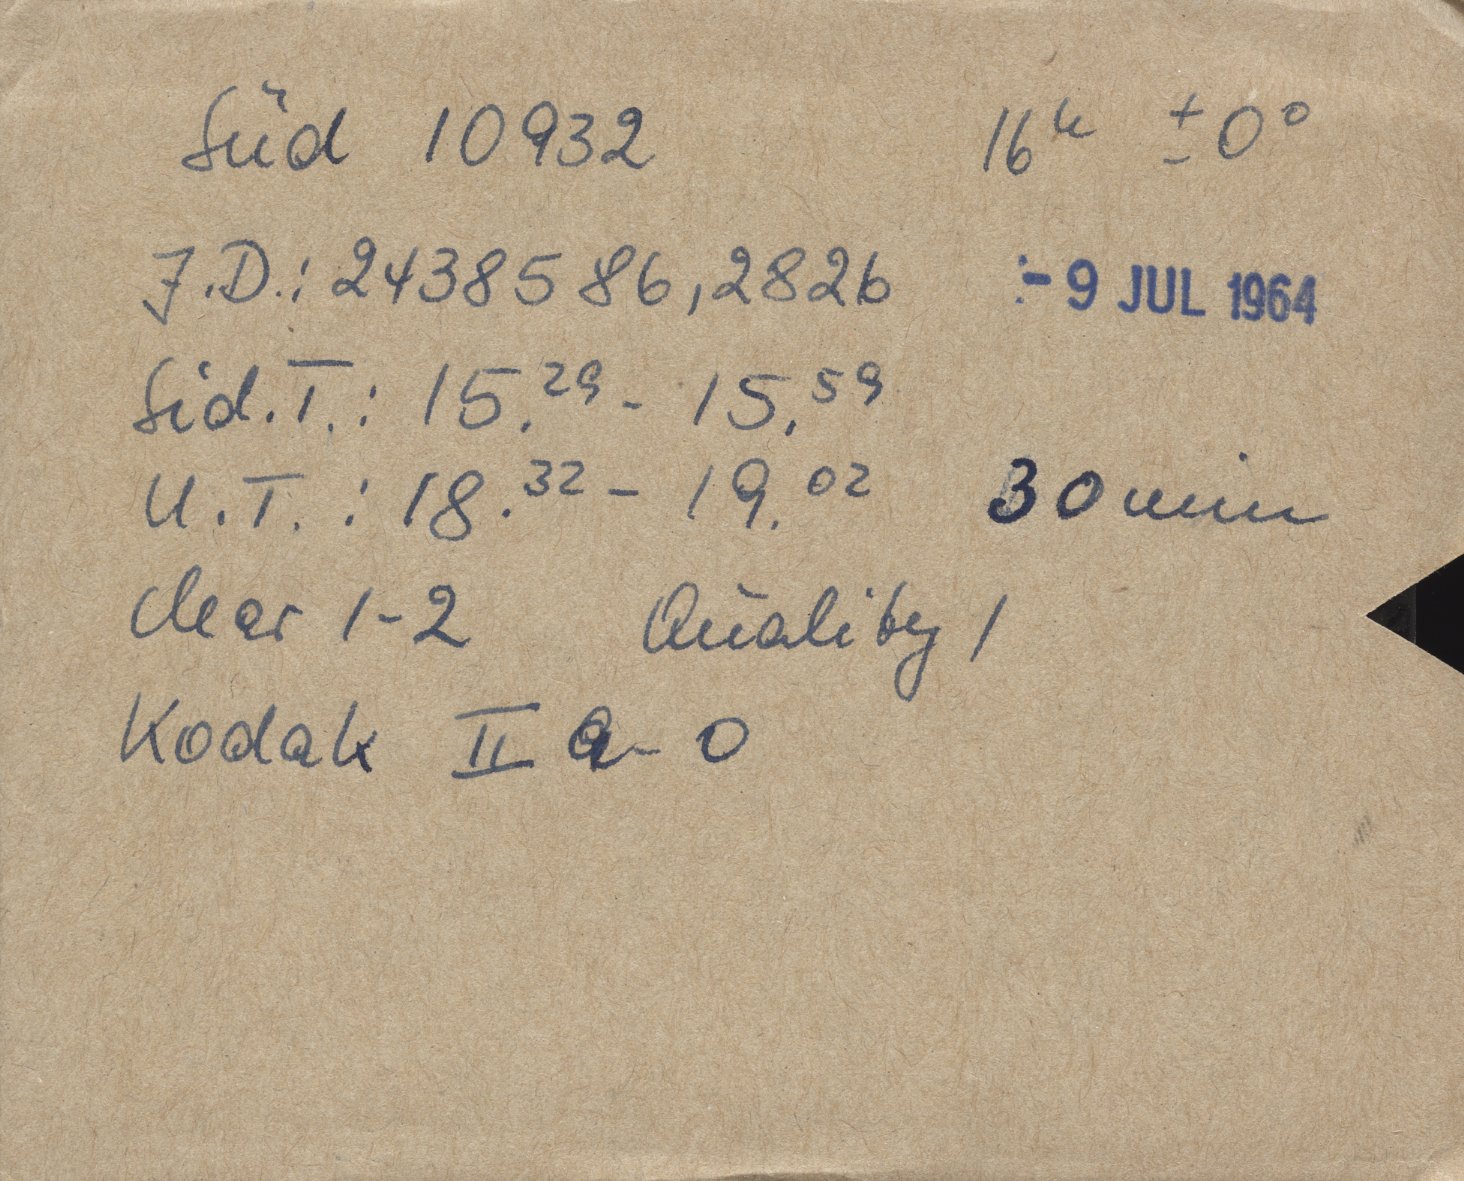 Süd 10932 16ʰ ±0°
J.D.: 2438586,2826 -9 JUL 1964
Sid.T.: 15.²⁹ - 15.⁵⁹
U.T.: 18.³² - 19.⁰² 30 min
clear 1-2 Quality 1
Kodak II a-O